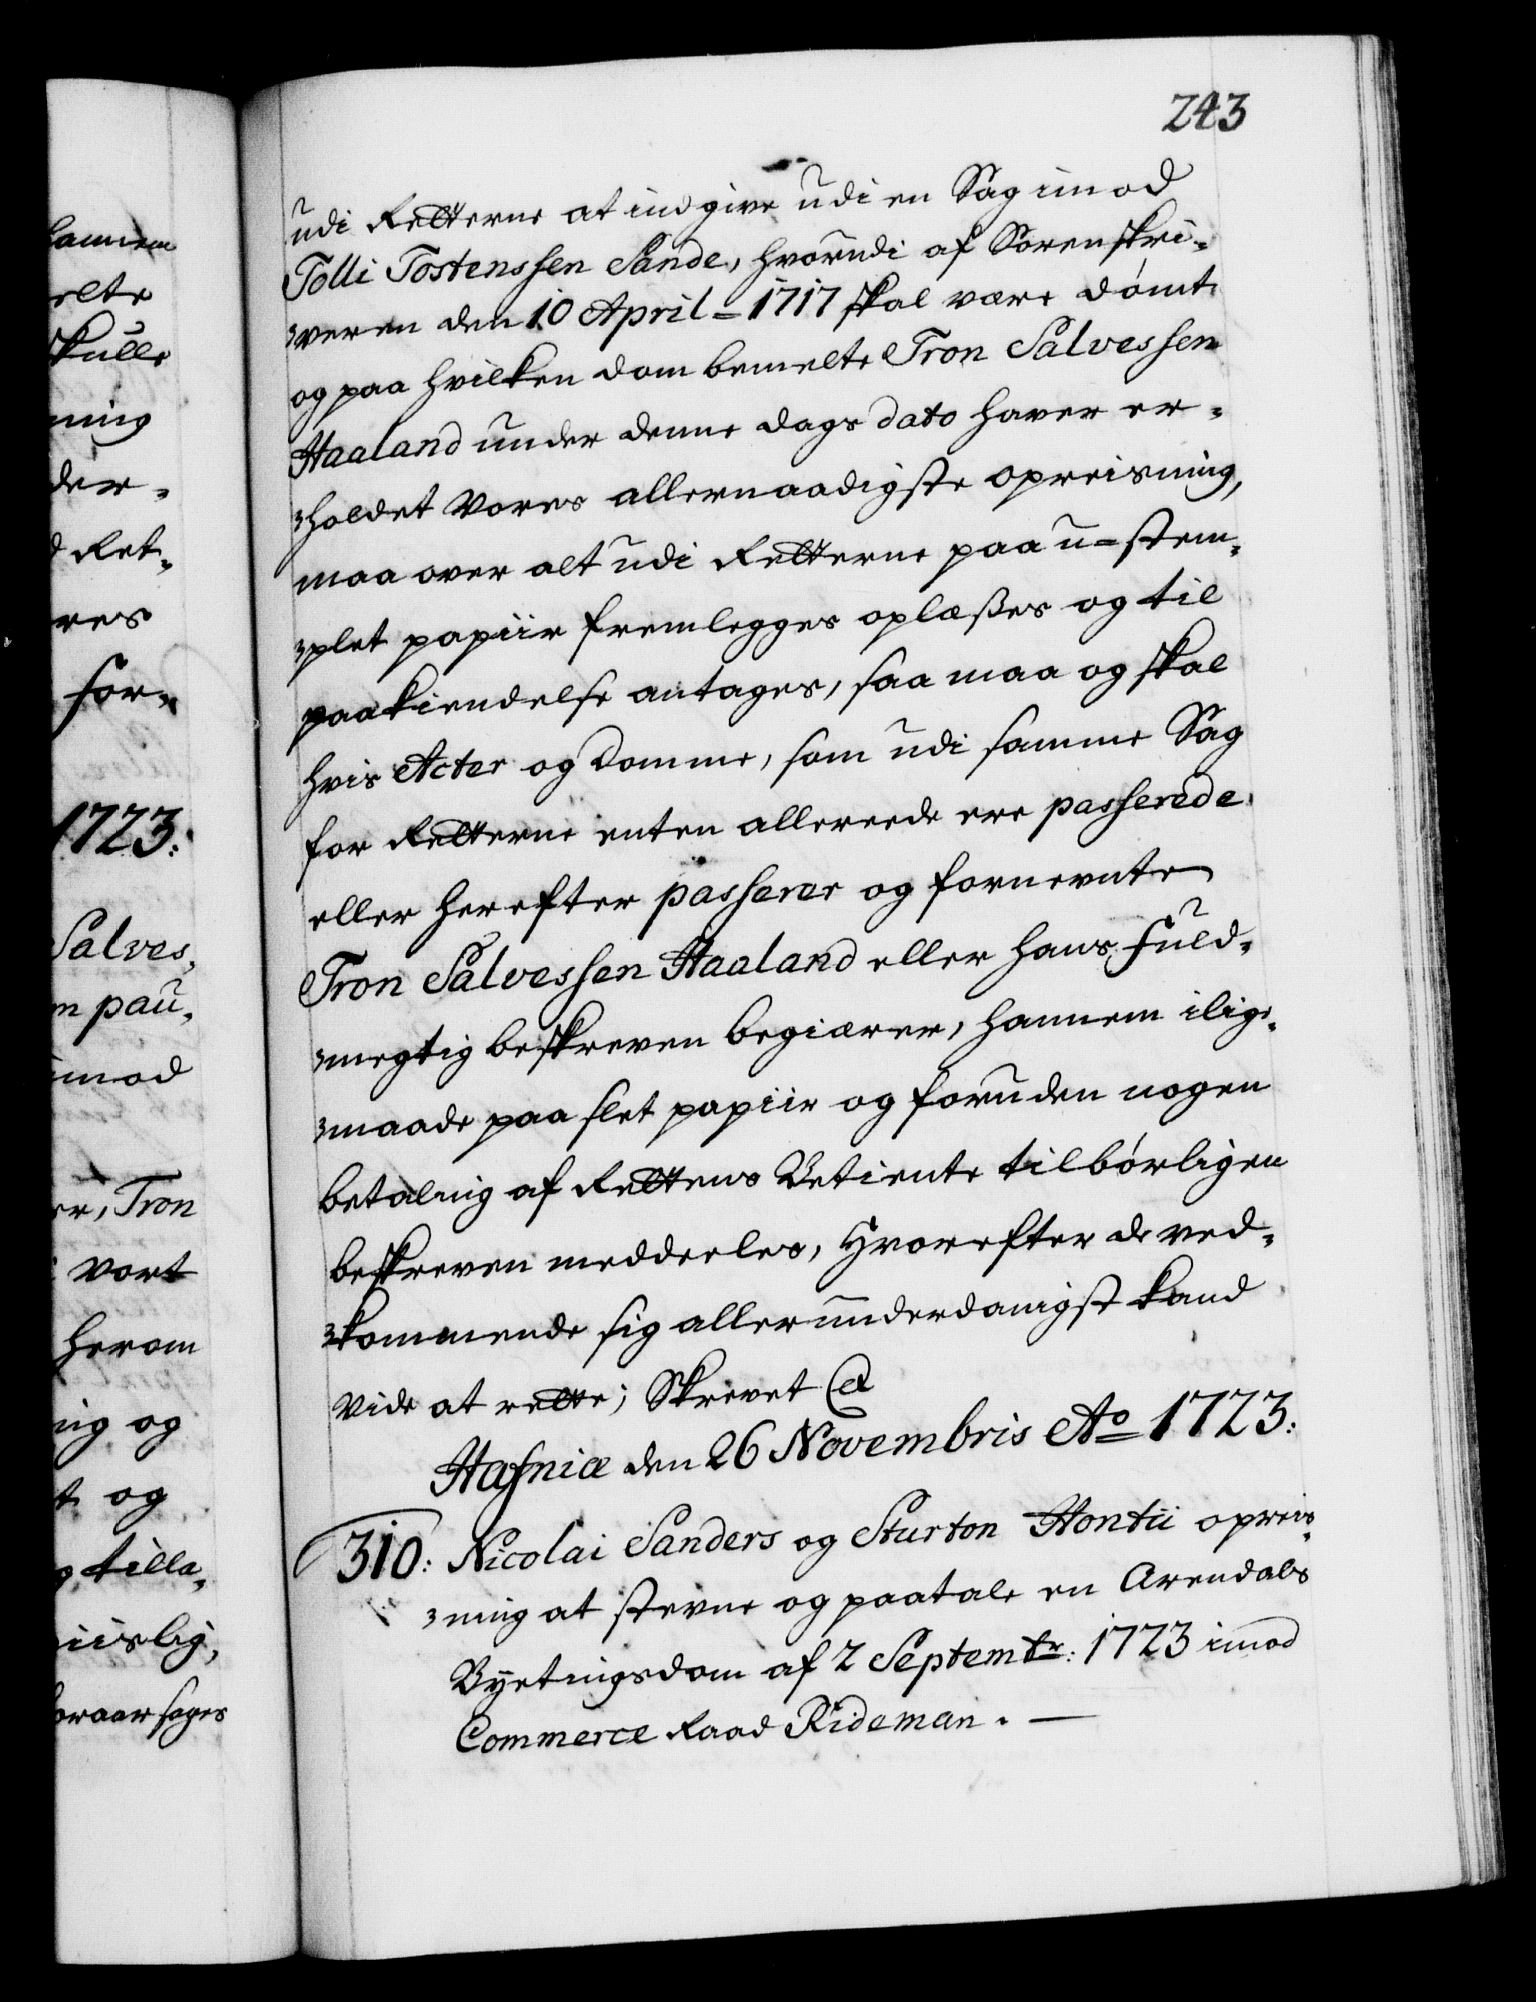 243
udi Retterne at indgive udi en Sag imod
Tolli Tostenssen Sande, hvorudi af Sorenskri-
veren den 10 April 1717 skal være dømt
og paa hvilken dom bemelte Tron Salvessen
Haaland under denne dags dato haver er-
holdet Vores allernaadigste opreisning,
maa over alt udi Retterne paa u-stem-
plet papiir fremlegges oplæses og til
paakiendelse antages, saa maa og skal
hvis Acter og Domme, som udi samme Sag
for Retterne enten allereede ere passerede
eller herefter passerer og fornevnte
Tron Salvessen Haaland eller hans Fuld-
megtig beskreven begiærer, hannem ilige-
maade paa slet papiir og foruden nogen
betaling af Rettens Betiente tilbørligen
beskreven meddeeles, Hvorefter de ved-
kommende sig allerunderdanigst kand
Vide at rette; Skrevet @
Hafniæ den 26 Novembris Ao 1723:
310: Nicolai Sanders og Sturton Hontii opreis-
ning at stevne og paatale en Arendals
Byetingsdom af 2 Septembr: 1723 imod
Commerce Raad Rideman. —
hannem
elte
skulle
ning
der-
Ret-
res
for-
1723:
Salves-
pau-
imod
er, Tron
vort
herom
ing og
og
tilla-
iislig,